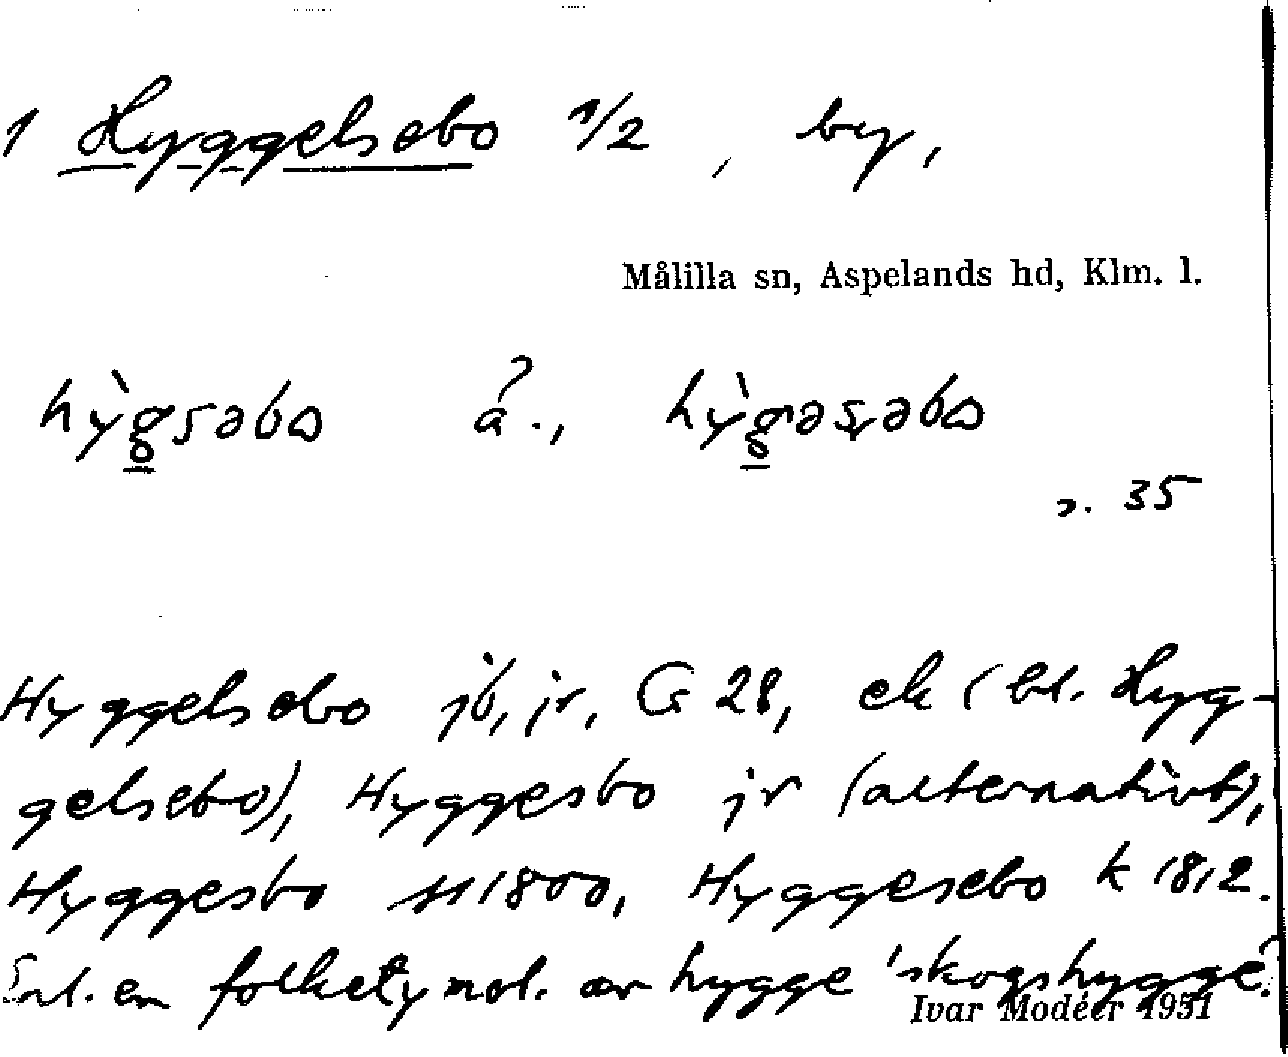 1 Hyggelsebo 1/2, by,
Målilla sn, Aspelands hd, Klm. l.
hỳgsəbo a., hỳgəsəbo
s. 35
Hyggelsebo jb, jr, G 28, ek (bl. Hyg-
gelsebo), Hyggesbo jr (alternativt),
Hyggesbo 1800, Hyggesebo k 1812.
Enl. en folketymol. av hygge 'skogshygge'.
Ivar Modéer 1951